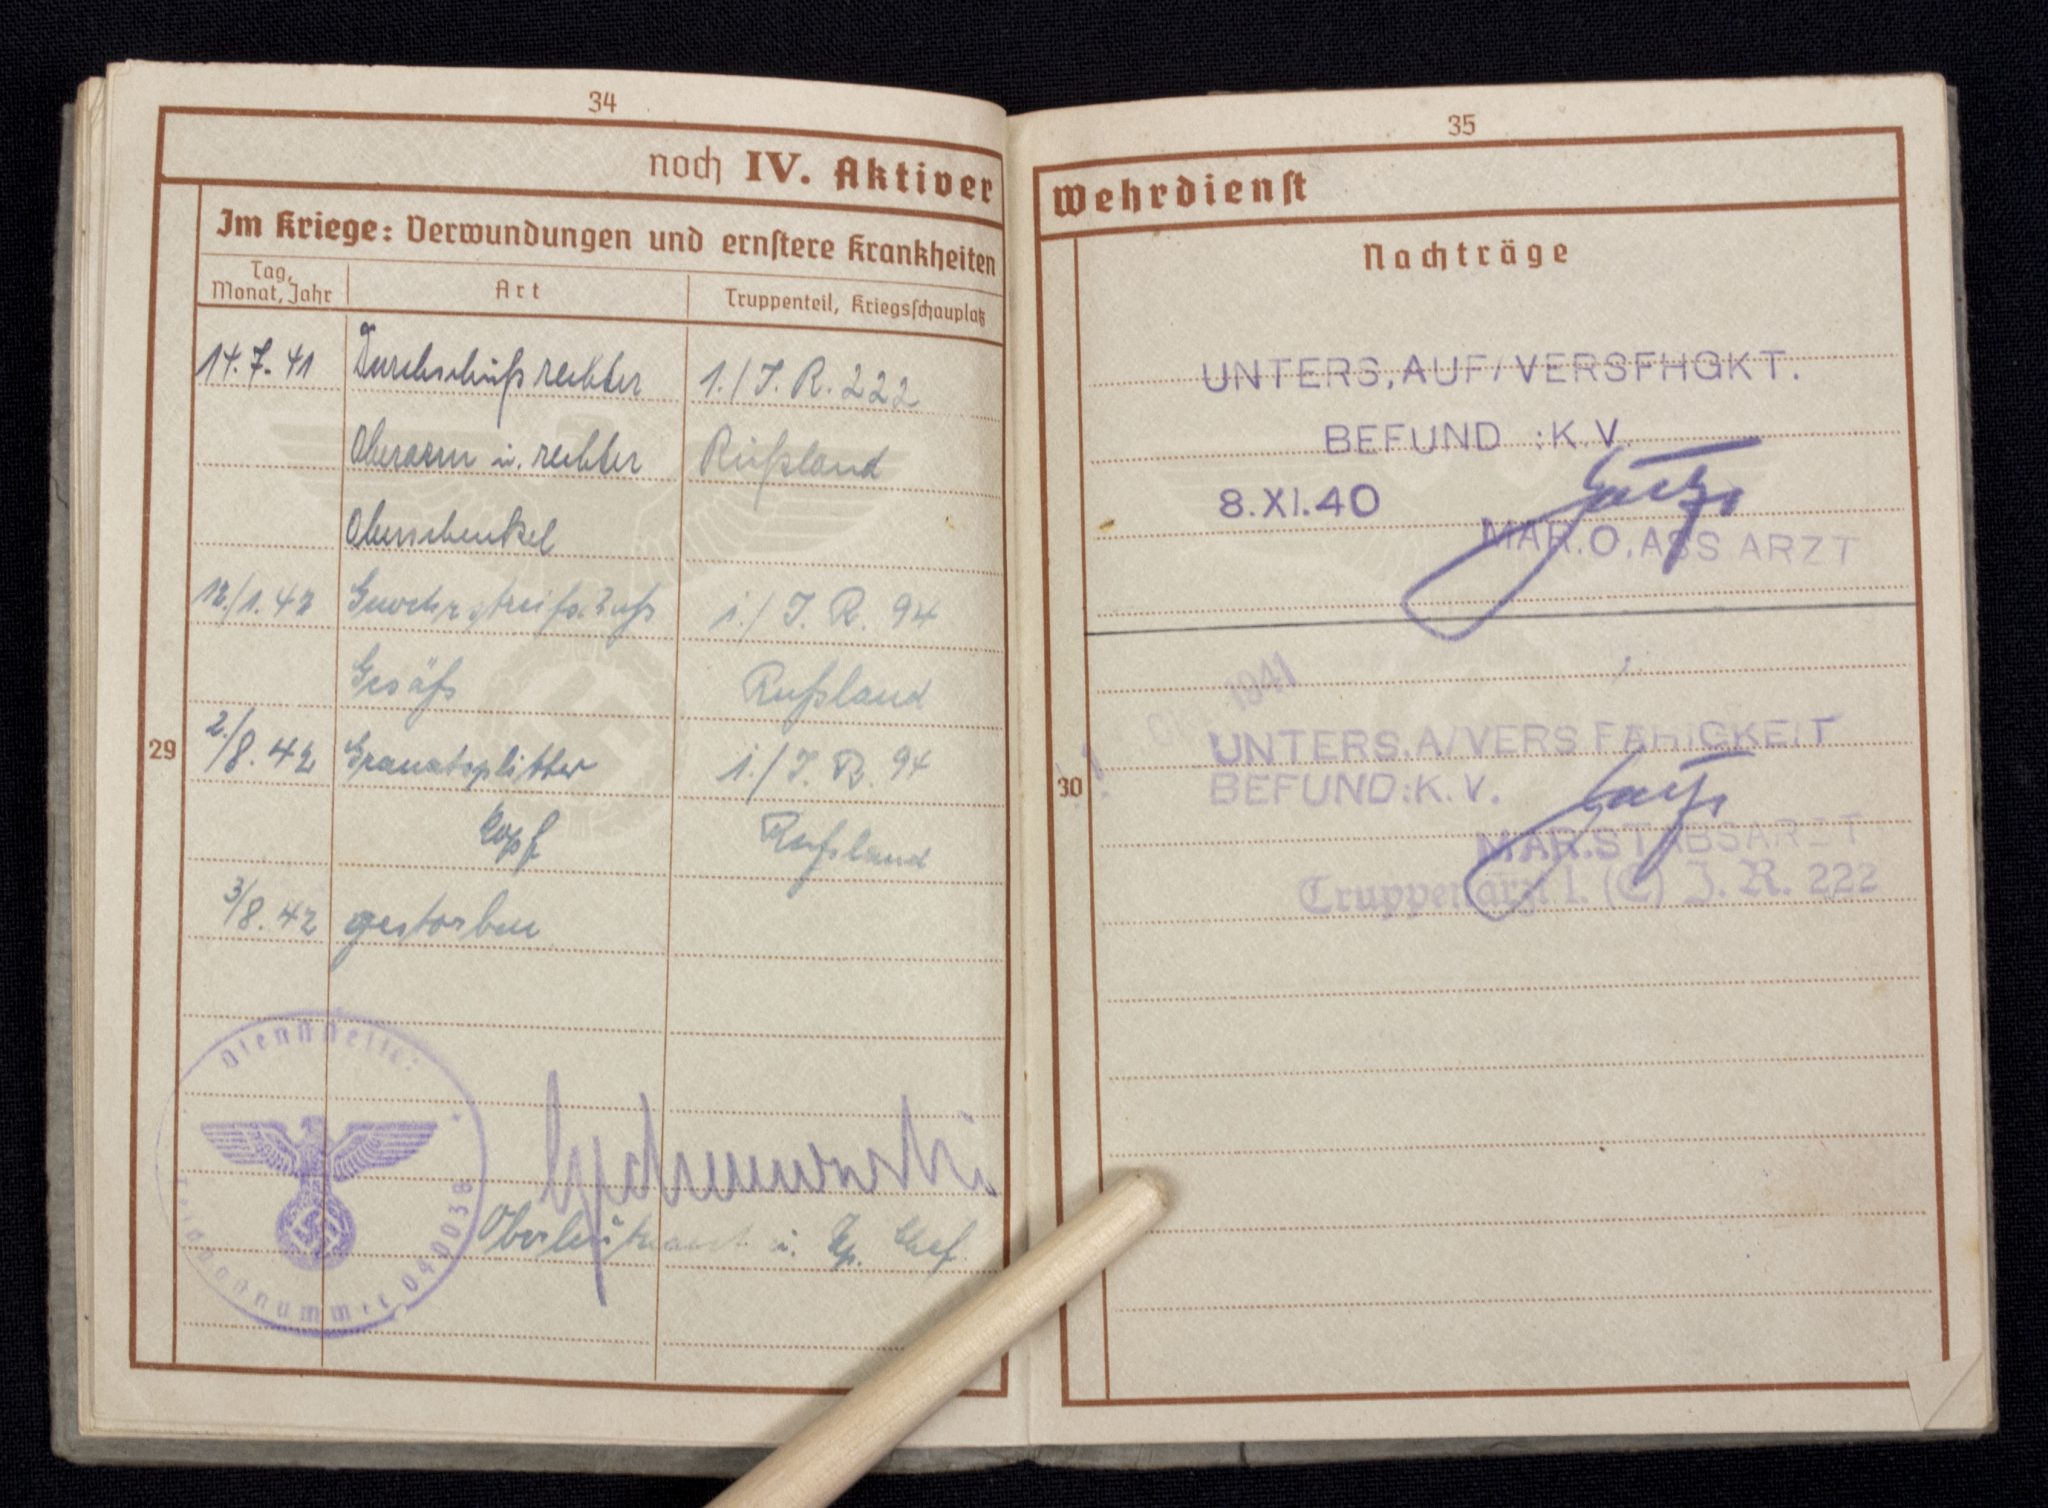 34
noch IV. Aktiver
Im Kriege: Verwundungen und ernstere Krankheiten
Tag, Monat, Jahr
Art
Truppenteil, Kriegsschauplatz
14.7.41 Durchschuß rechter 1./J.R.222
Oberarm u. rechter Rußland
Oberschenkel
12./1.42 1./J.R. 94
Gesäß Rußland
29
2./8.42 Granatsplitter 1./J.R. 94
Kopf Rußland
3/8.42 gestorben
Dienststelle:
Feldpostnummer 04003B
Oberleutnant u. Kp. Chef.
35
Wehrdienst
Nachträge
UNTERS,AUF/VERSFHGKT.
BEFUND :K.V.
8.XI.40
MAR.O.ASS ARZT
1941
UNTERS.A/VERS FÄHIGKEIT
30
BEFUND:K.V.
MAR.STABSARZT
Truppenarzt I. (E) J.R. 222